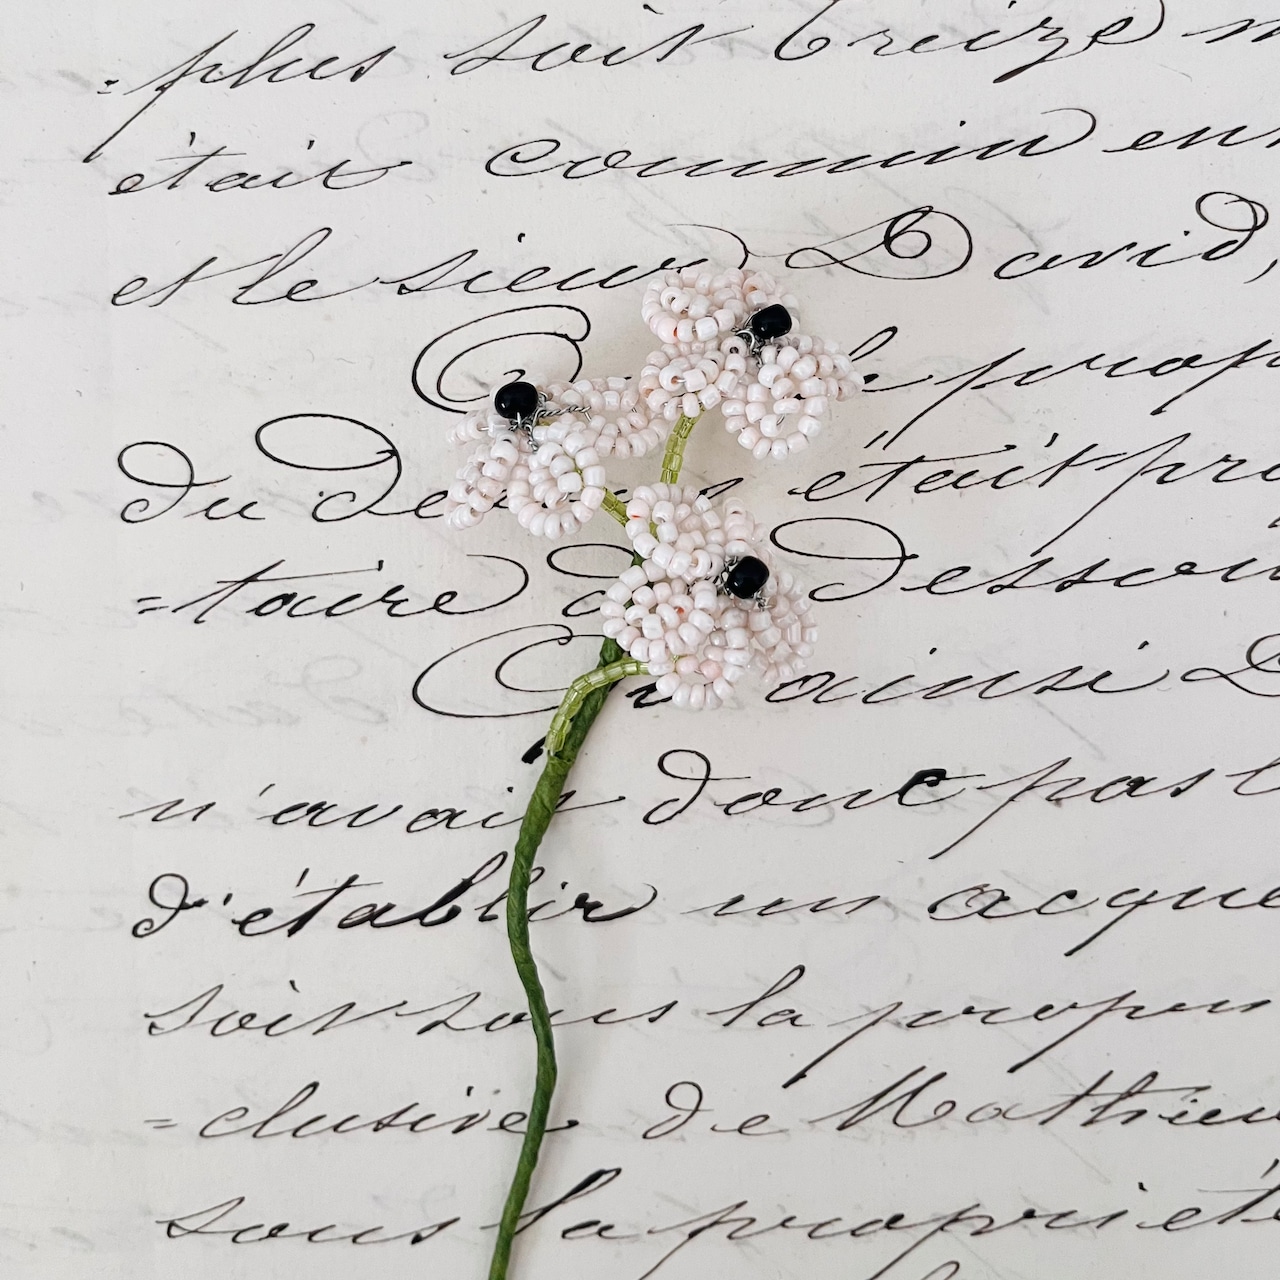 =plus soit treize
était commun
et le sieur David,
propr
du dessus était pro
=taire dessou
ainsi
n'avait donc pas
d'établir un acque
soit sous la propr
=clusive de Mathieu
sous la propriété